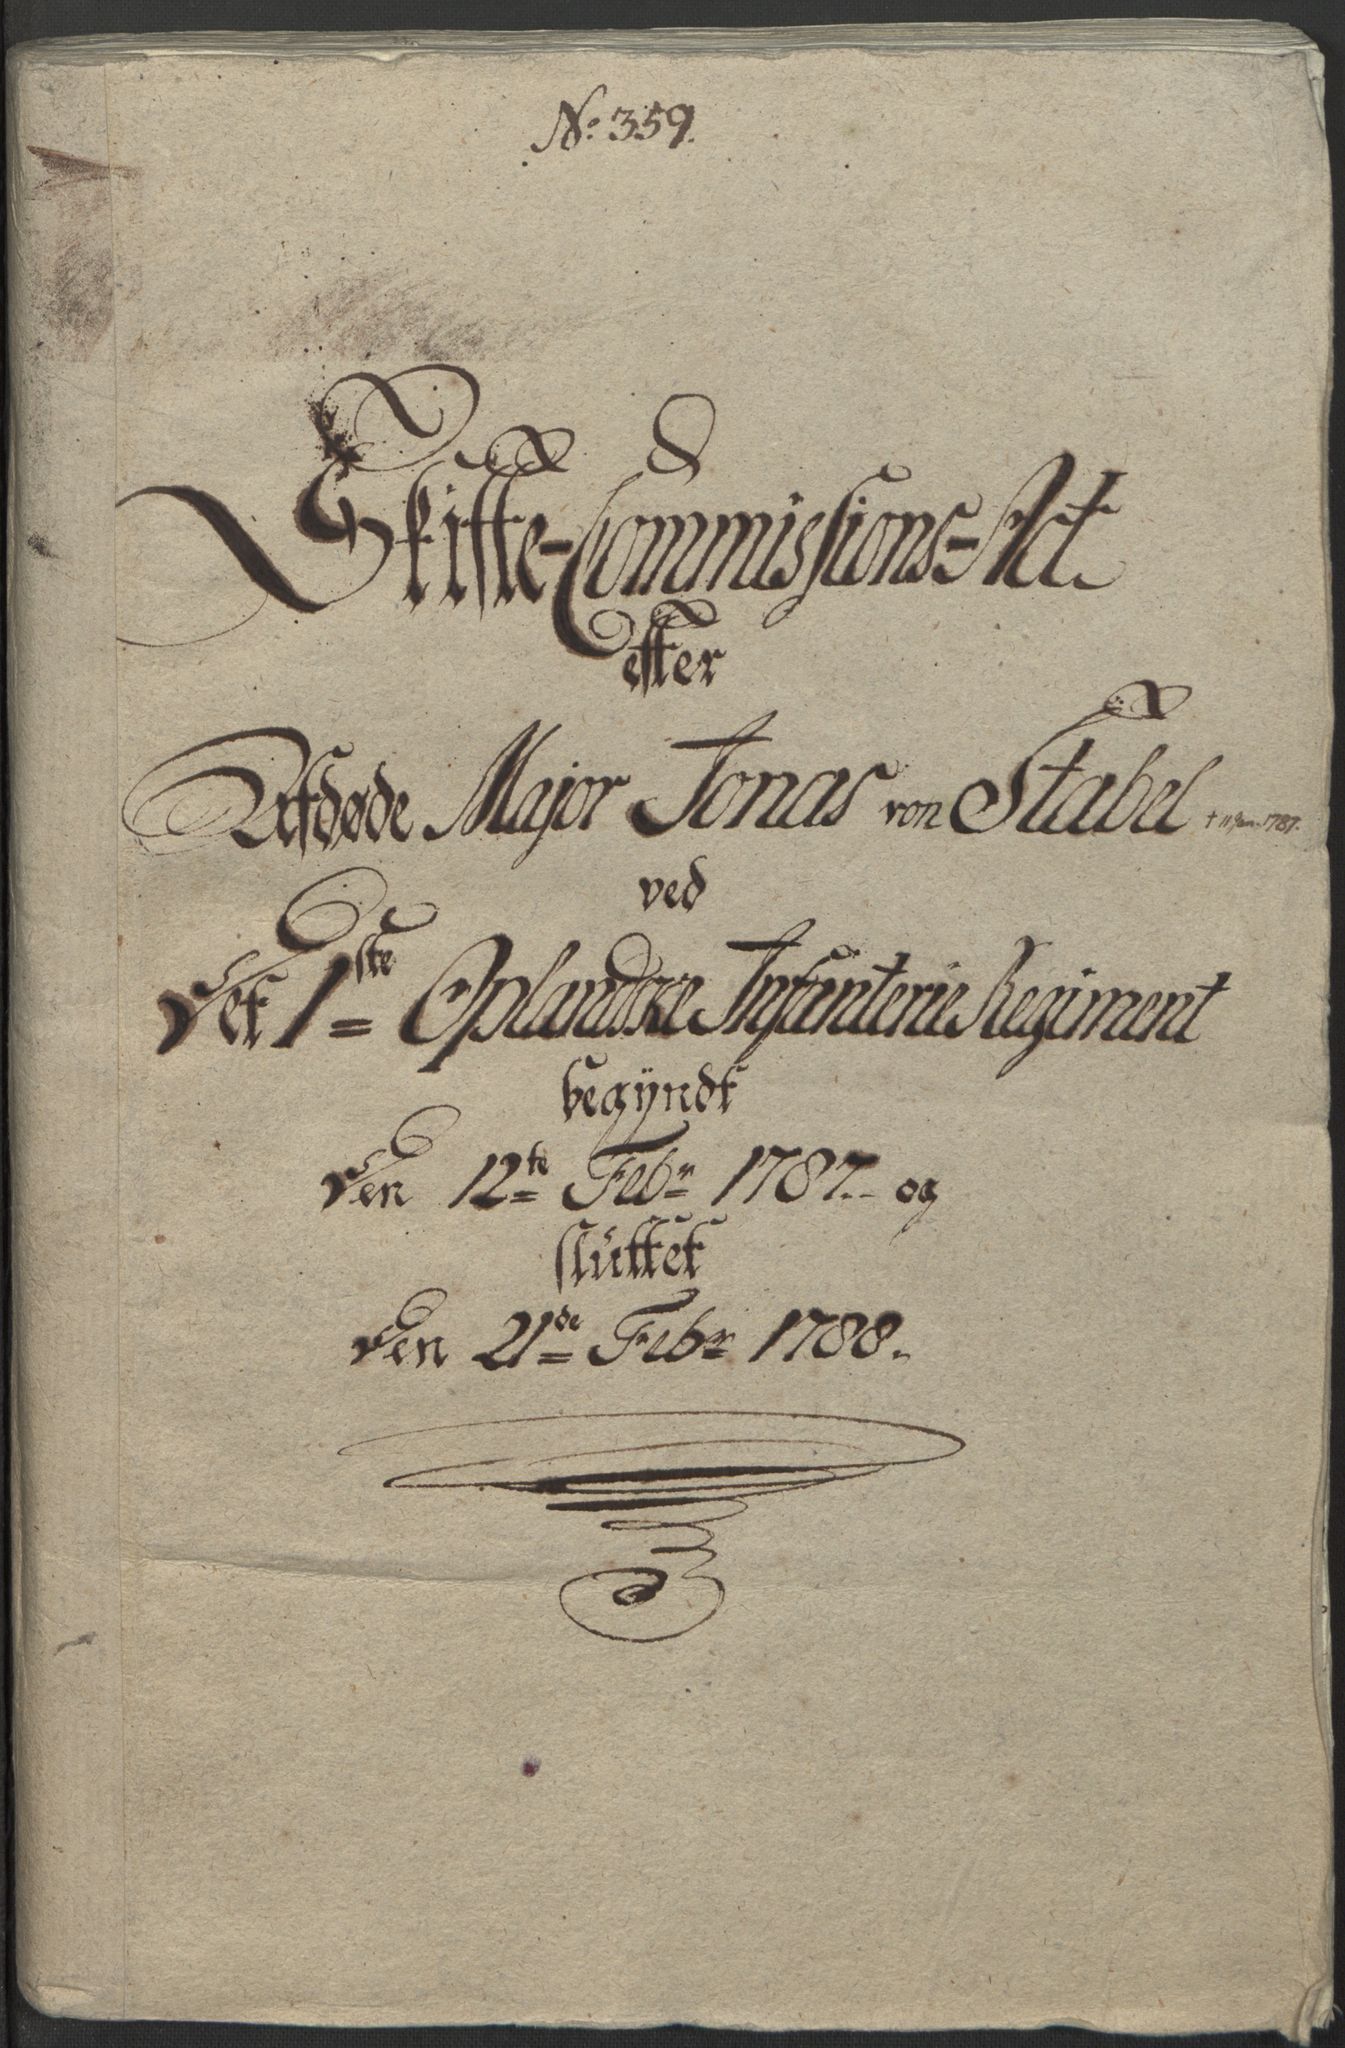 No. 359.
Skifte-Commissions-Act
efter
Afdøde Major Jonas von Stabel † 11 Jan. 1787.
ved
Det 1ste Oplandske Infanterie Regiment
begÿndt
Den 12te Febr 1787. og
sluttet
Den 21de Febr 1788.